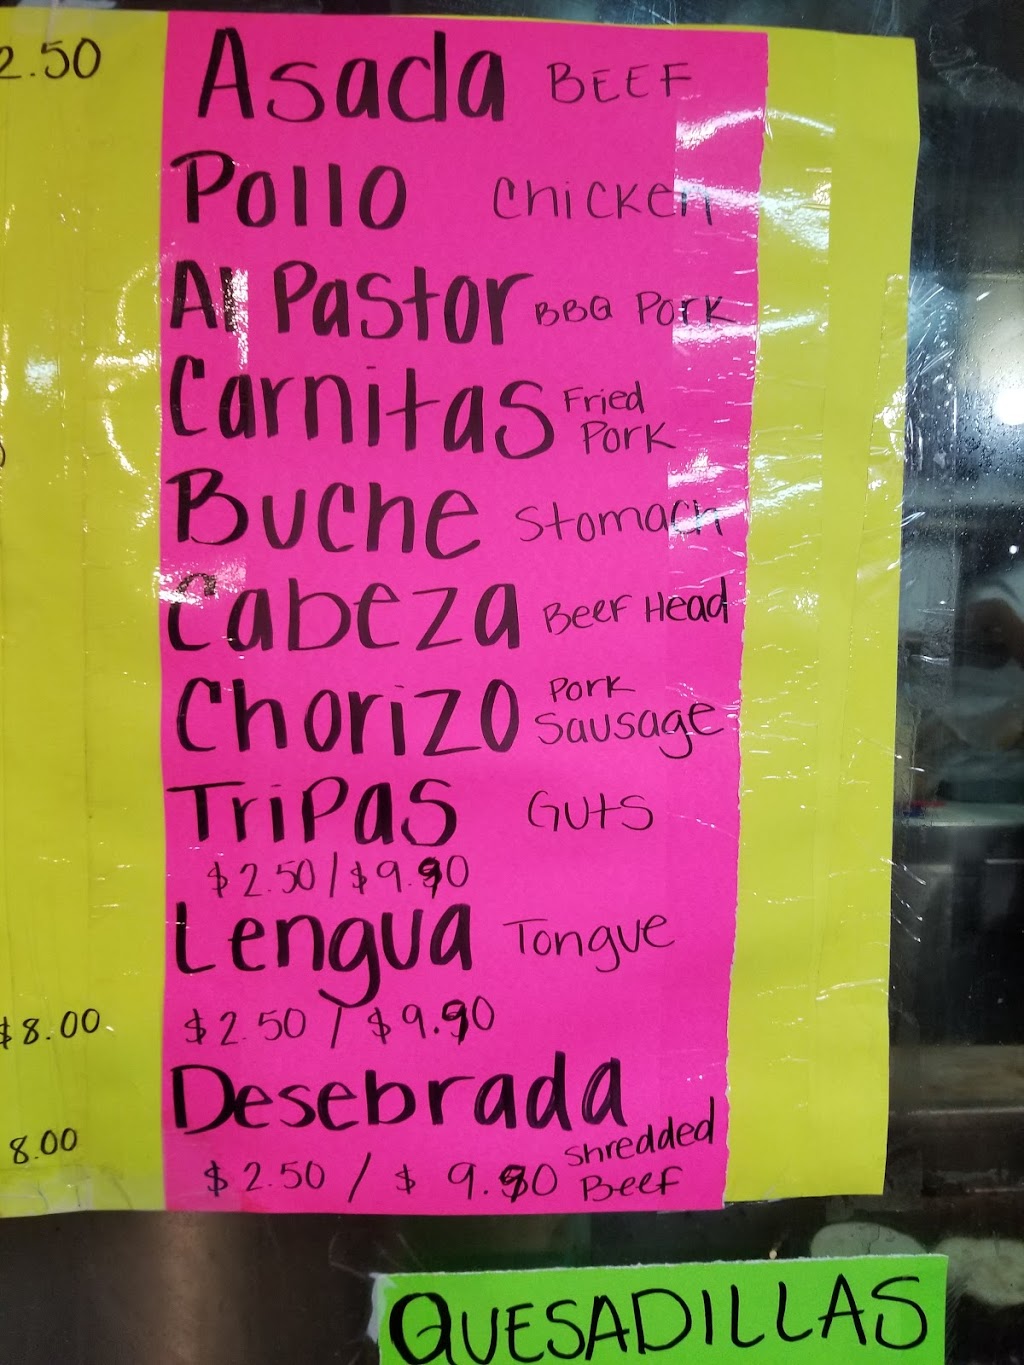 2.50
Asada BEEF
Pollo Chicken
Al Pastor BBQ Pork
Carnitas Fried Pork
Buche Stomach
Cabeza Beef Head
Chorizo Pork Sausage
Tripas Guts
$2.50/$9.90
Lengua Tongue
$8.00
$2.50/$9.90
Desebrada Shredded Beef
8.00
$2.50/$9.90
QUESADILLAS